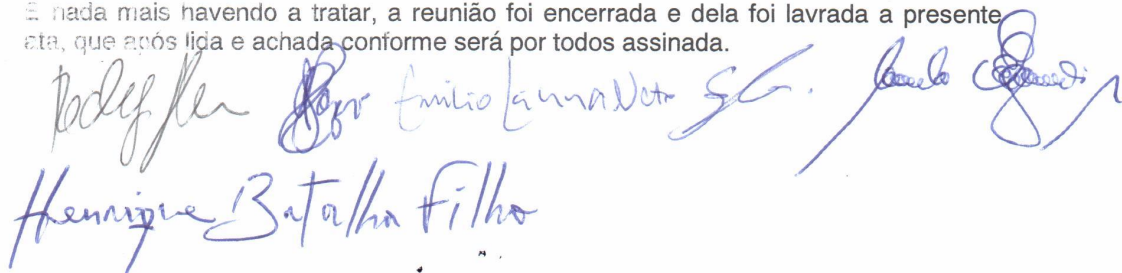 E nada mais havendo a tratar, a reunião foi encerrada e dela foi lavrada a presente
ata, que após lida e achada conforme será por todos assinada.
Emilio Lanna Neto
Henrique Batalha Filho